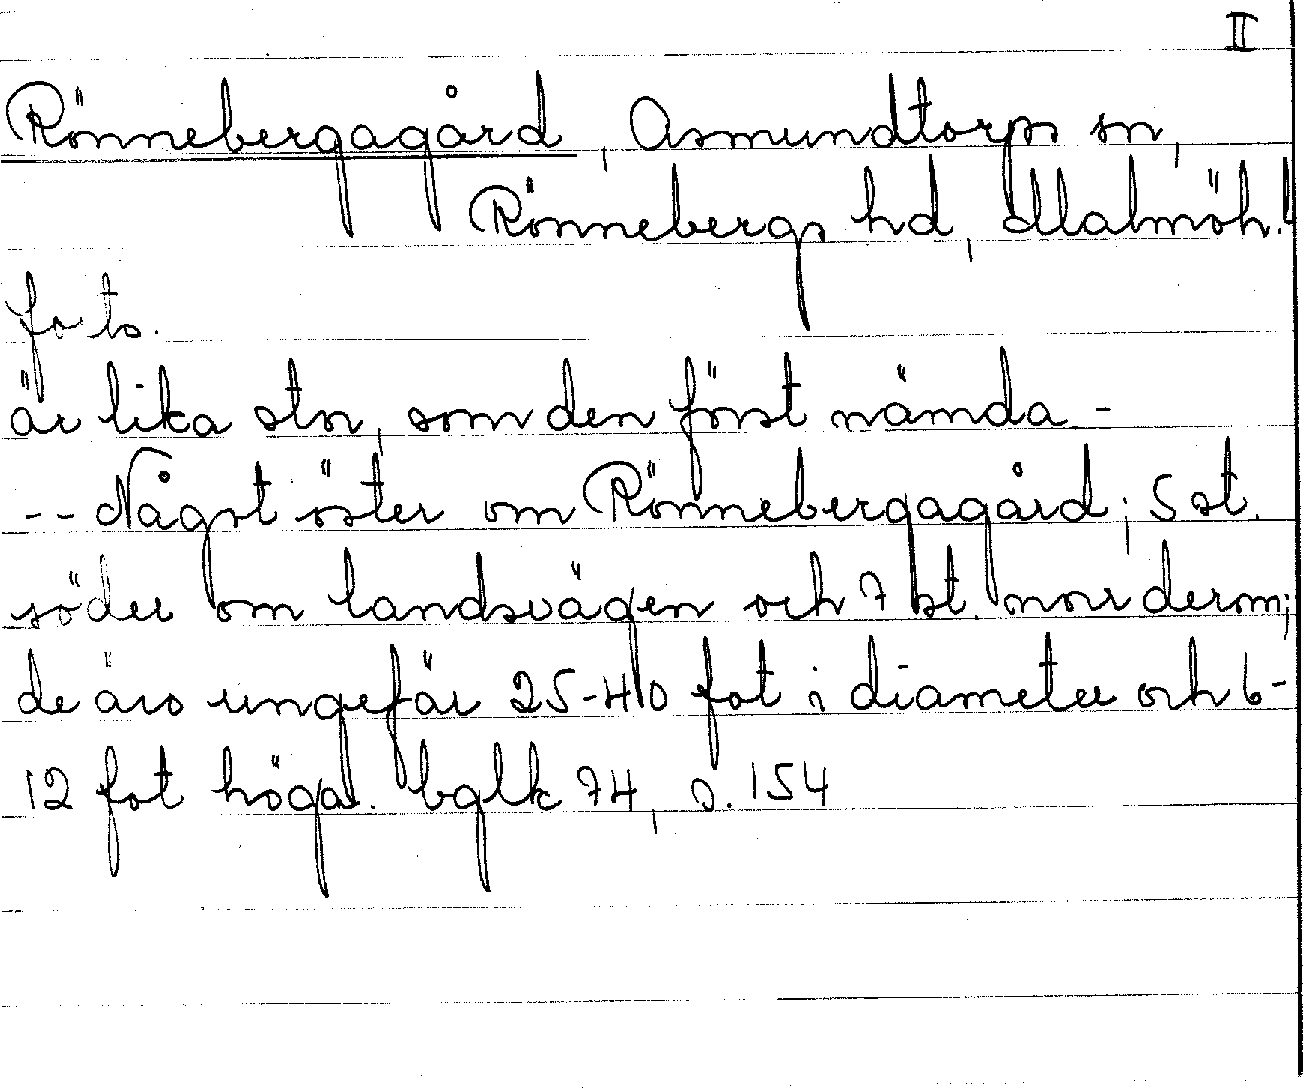 II
Rönnebergagård, Asmundtorps sn,
Rönnebergs hd, Malmöh.l
forts.
är lika stor, som den först nämda -
-- Något öster om Rönnebergagård; 5 st.
söder om landsvägen och 7 st. norr derom;
de äro ungefär 25-40 fot i diameter och 6-
12 fot höga. bglk 74, s. 154